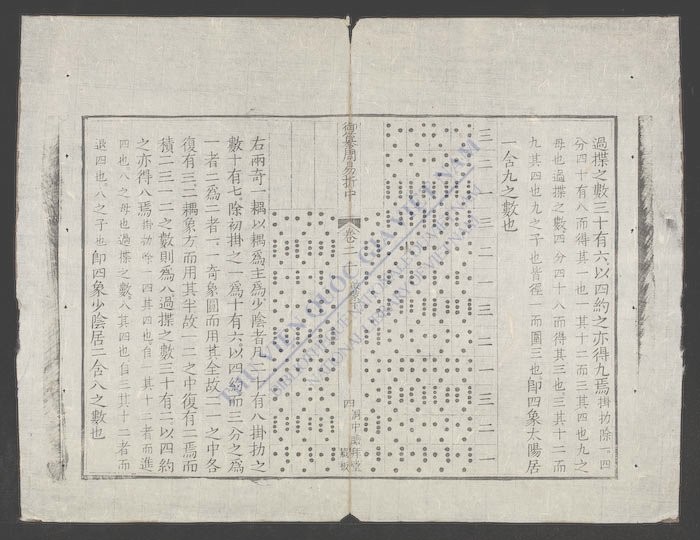 過揲之數三十有六以四約之亦得九焉掛扐除一四
分四十有八而得其一也一其十二而三其四也九之
母也過揲之數四分四十八而得其三也三其十二而
九其四也九之子也皆徑一而圍三也即四象太陽居
一含九之數也
三二一三二一三二一三二一
御纂周易折中
卷二十
四
右兩奇一耦以耦為主為少陰者凡二十有八掛扐之
數十有七除初掛之一為十有六以四約而三分之為
一者二為二者一一奇象圓而用其全故二一之中各
復有三二耦象方而用其半故一二之中復有二焉而
積二三一二之數則為八過揲之數三十有二以四約
之亦得八焉掛扐除一四其四也自一其十二者而進
四也八之母也過揲之數八其四也自三其十二者而
退四也八之子也即四象少陰居二含八之數也
THƯ VIỆN QUỐC GIA VIỆT NAM
NATIONAL LIBRARY OF VIETNAM